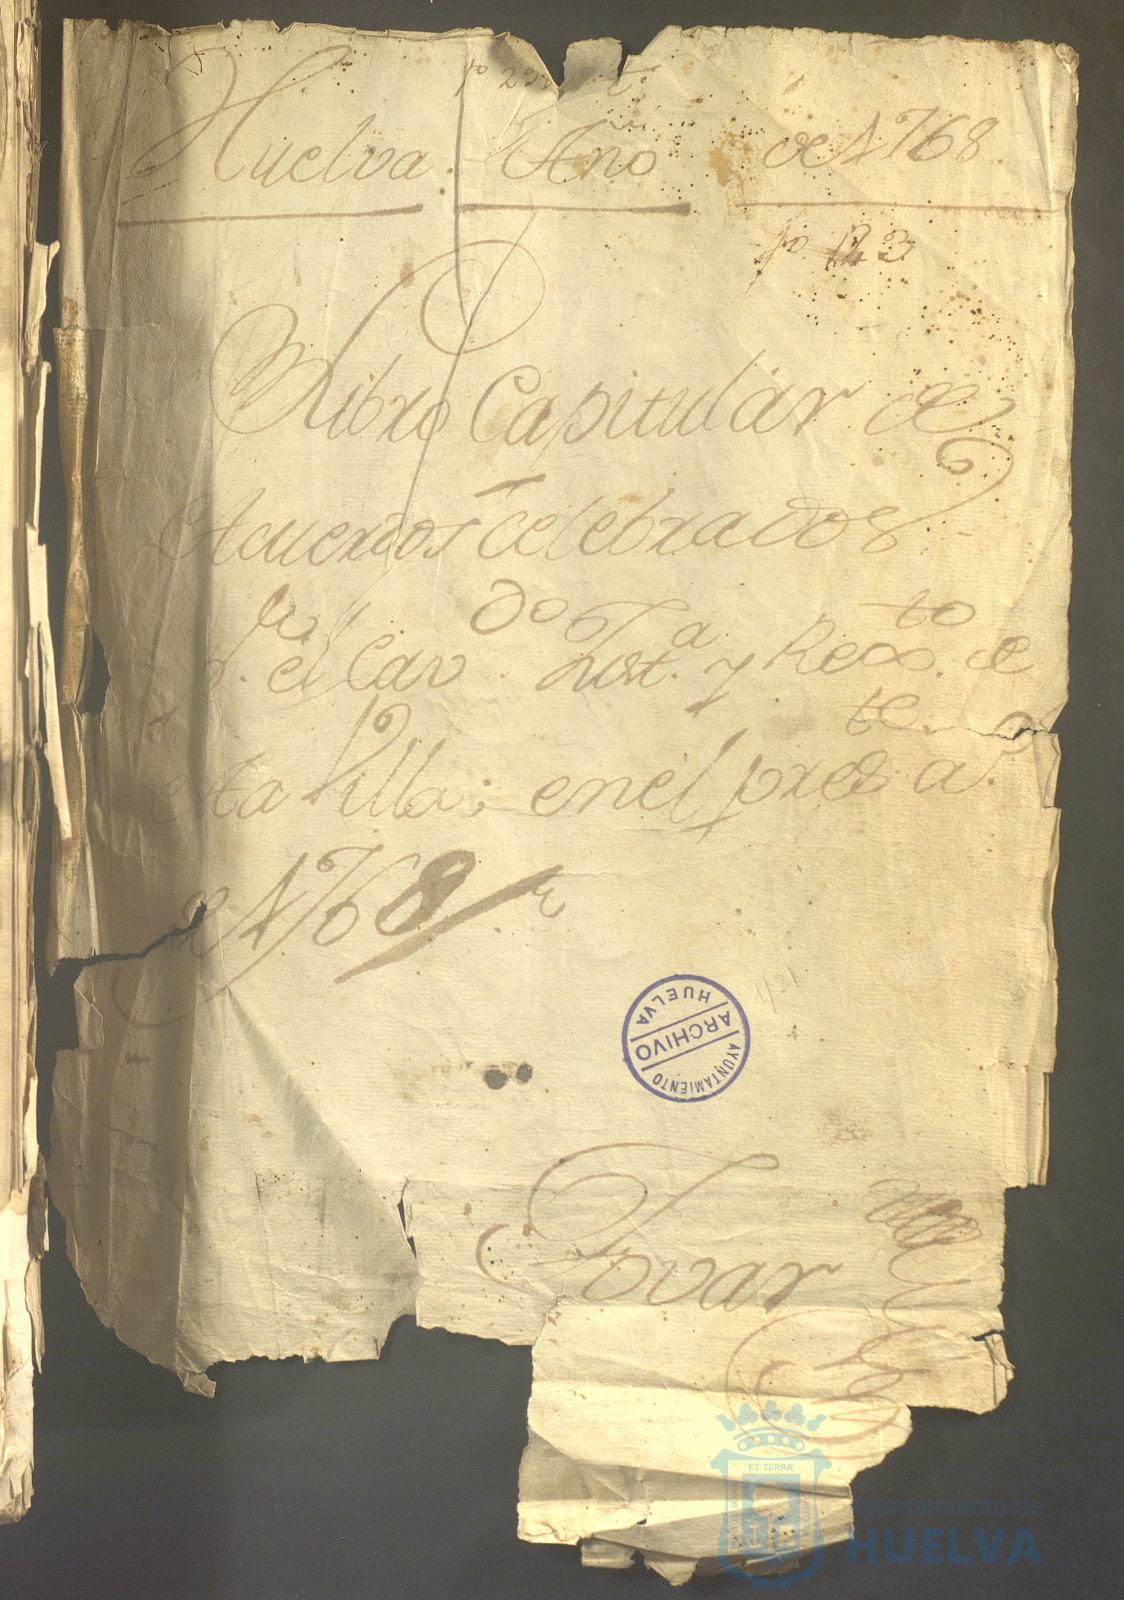 Huelva. Año de 1768
fo 123
Libro Capitular de
Acuerdos celebrados
Pr. el Cavdo. Justa. y Rexto. de
esta Villa; en el preste a.o
de 1768
AYUNTAMIENTO
ARCHIVO
HUELVA
Tovar
ET TERRÆ
Ayuntamiento de
HUELVA